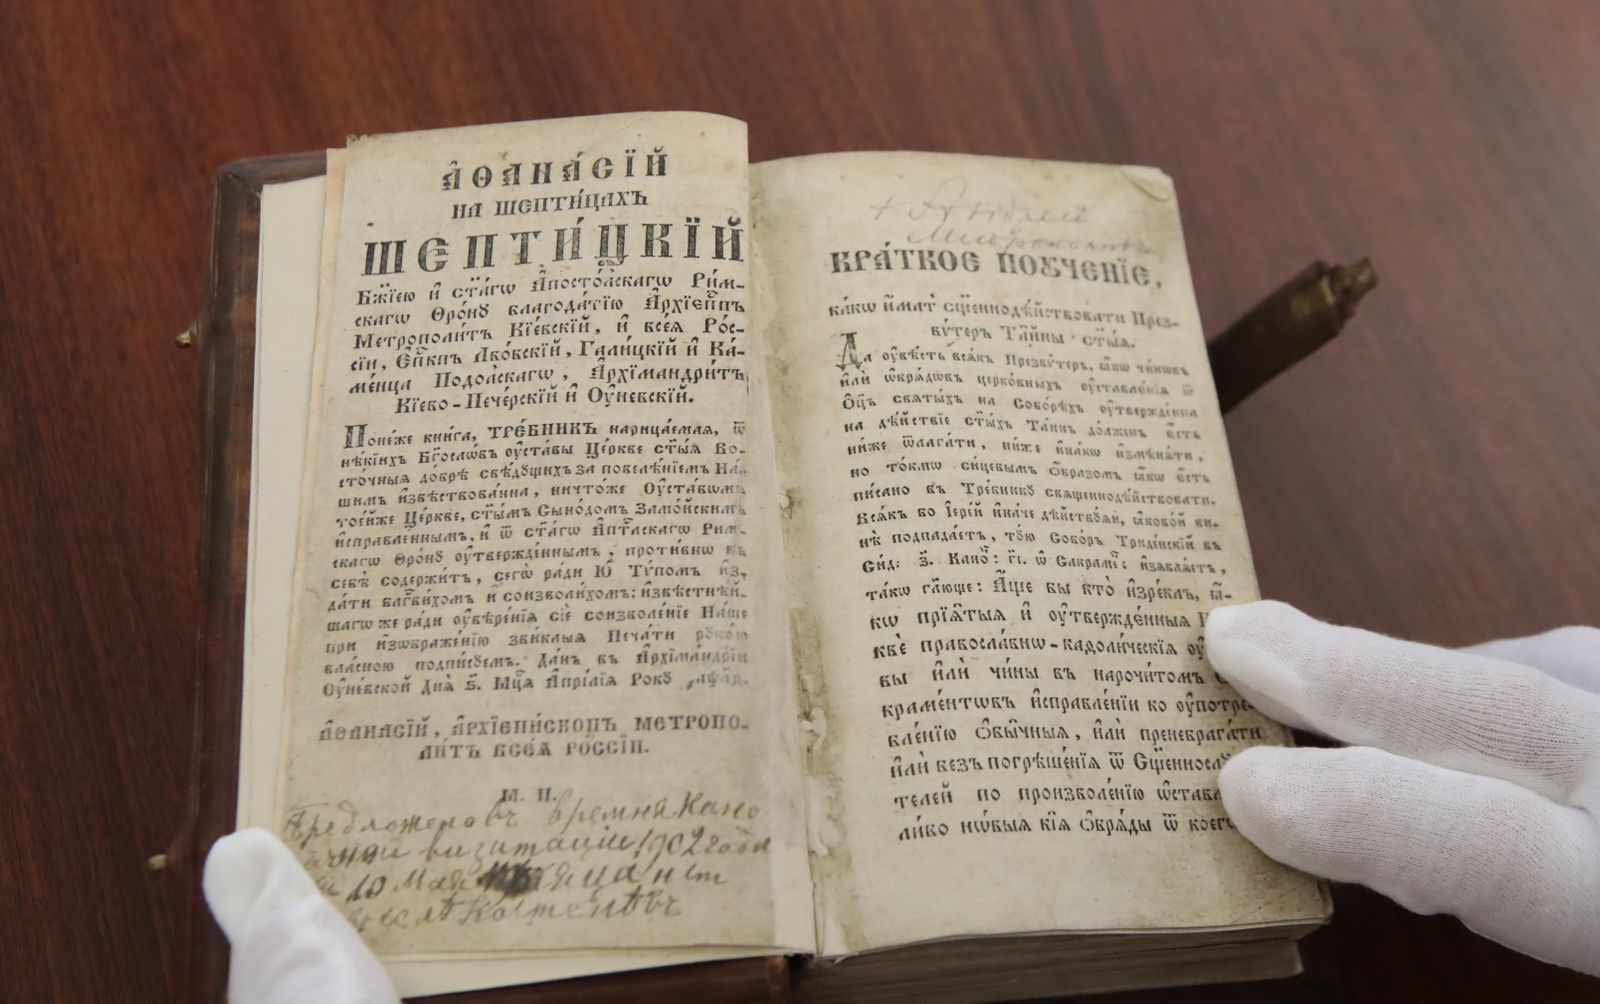 АѲАНАСІЙ
НА ШЕПТИЦАХЪ
ШЕПТИЦКІЙ
Бж҃їею и҆ ст҃агѡ А҆постол҃скагѡ Рим-
скагѡ Ѳро́нꙋ благода́тїю А҆рхїеп҃пъ
Метрополи́тъ Кїе́вскїй, и҆ всеѧ̀ Рѡ́с-
сїи, Е҆п҃кпъ Лво́вскїй, Га́лицкїй и҆ Ка́-
ме́нца Подо́лскагѡ, А҆рхїмандри́тъ
Кїево-Пече́рскїй и҆ Оу҆не́вскїй.
Поне́же кни́га, ТРЕ́БНИКЪ нарица́емаѧ, ѿ
нѣ́кїихъ Бг҃осло́въ оу҆ста́вы Це́ркве ст҃ы́ѧ Во-
сто́чныѧ до́брѣ свѣ́дꙋщихъ за повелѣ́нїемъ На́-
шимъ и҆звѣствова́нна, ничто́же Оу҆ста́вѡмъ
тое́йже Це́ркве, ст҃ы́мъ Сѵно́домъ Замо́йскимъ
и҆спра́вленнымъ, и҆ ѿ ст҃а́гѡ А҆пⷭ҇тлскагѡ Рим-
скагѡ Ѳро́нꙋ оу҆твержде́ннымъ, проти́внѡ въ
себѣ̀ содержи́тъ, сегѡ̀ ра́ди Ю҆ Тѵ́помъ и҆з-
да́ти блгⷭ҇ви́хомъ и҆ соизво́лихомъ; и҆звѣстнѣ́й-
шагѡ же ра́ди оу҆вѣре́нїѧ сїѐ соизволе́нїе На́ше
при и҆зѡбраже́нїю зви́клыѧ Печа́ти рꙋко́ю
вла́сною подпи́сꙋемъ. Да́нъ въ А҆рхїмандрі́и
Оу҆не́вской Днѧ̀ ѕ҃. Мц҃а А҆прі́лїѧ Ро́кꙋ
АѲАНАСІЙ, А҆РХЇЕПИ́СКОПЪ МЕТРОПО-
ЛИ́ТЪ ВСЕѦ̀ РѠ́ССІИ.
М. П.
Предложено въ времня Кано
визитаціи 1902 года
10 Мая
+ Андрей
КРА́ТКОЕ ПОꙊЧЕ́НЇЕ,
ка́кѡ и҆́мать сщ҃еннодѣ́йствовати През-
вѵ́теръ Та́йны ст҃ы́ѧ.
Да оу҆вѣ́сть всѧ́къ Презвѵ́теръ, ꙗ҆́кѡ чи́нѡвъ
и҆лѝ ѡ҆брѧ́дѡвъ церко́вныхъ оу҆ставле́нїѧ ѿ
Ѻ҆ц҃ъ свѧты́хъ на Собо́рѣхъ оу҆твержде́нна
на дѣ́йствїе ст҃ы́хъ Та́инъ до́лженъ є҆́сть
ни́же ѿлага́ти, ни́же и҆на́кѡ и҆змѣнѧ́ти,
но то́кмѡ си́цевымъ ѻ҆́бразомъ ꙗ҆́кѡ є҆́сть
пи́сано въ Тре́бникꙋ свѧщеннодѣ́йствовати.
Всѧ́къ бо І҆ере́й и҆на́че дѣ́йствꙋѧй, ꙗ҆ково́й ви-
нѣ̀ подпада́етъ, тꙋ́ю Собо́ръ Триде́нскїй въ
Сид: ѕ҃. Кано́н: гі҃. ѡ҆ Сакрам: и҆з̾ѧвлѧ́етъ,
та́кѡ гл҃юще: А҆́ще бы кто̀ и҆зре́клъ, ꙗ҆́-
кѡ прїѧ́тыѧ и҆ оу҆твержде́нныѧ
квѐ правосла́внѡ-каѳоли́ческїѧ
бы и҆лѝ чи́ны въ нарочи́томъ
краме́нтѡвъ и҆справле́нїи ко оу҆потре-
вле́нїю ѻ҆бы́чныѧ, и҆лѝ пренебрага́ти
и҆лѝ безъ погрѣше́нїѧ ѿ Сщ҃еннослꙋ-
телей по произволе́нїю ѡ҆ставл
ли́бо нѡ́выѧ кїѧ ѻ҆брѧ́ды ѿ коегѡ